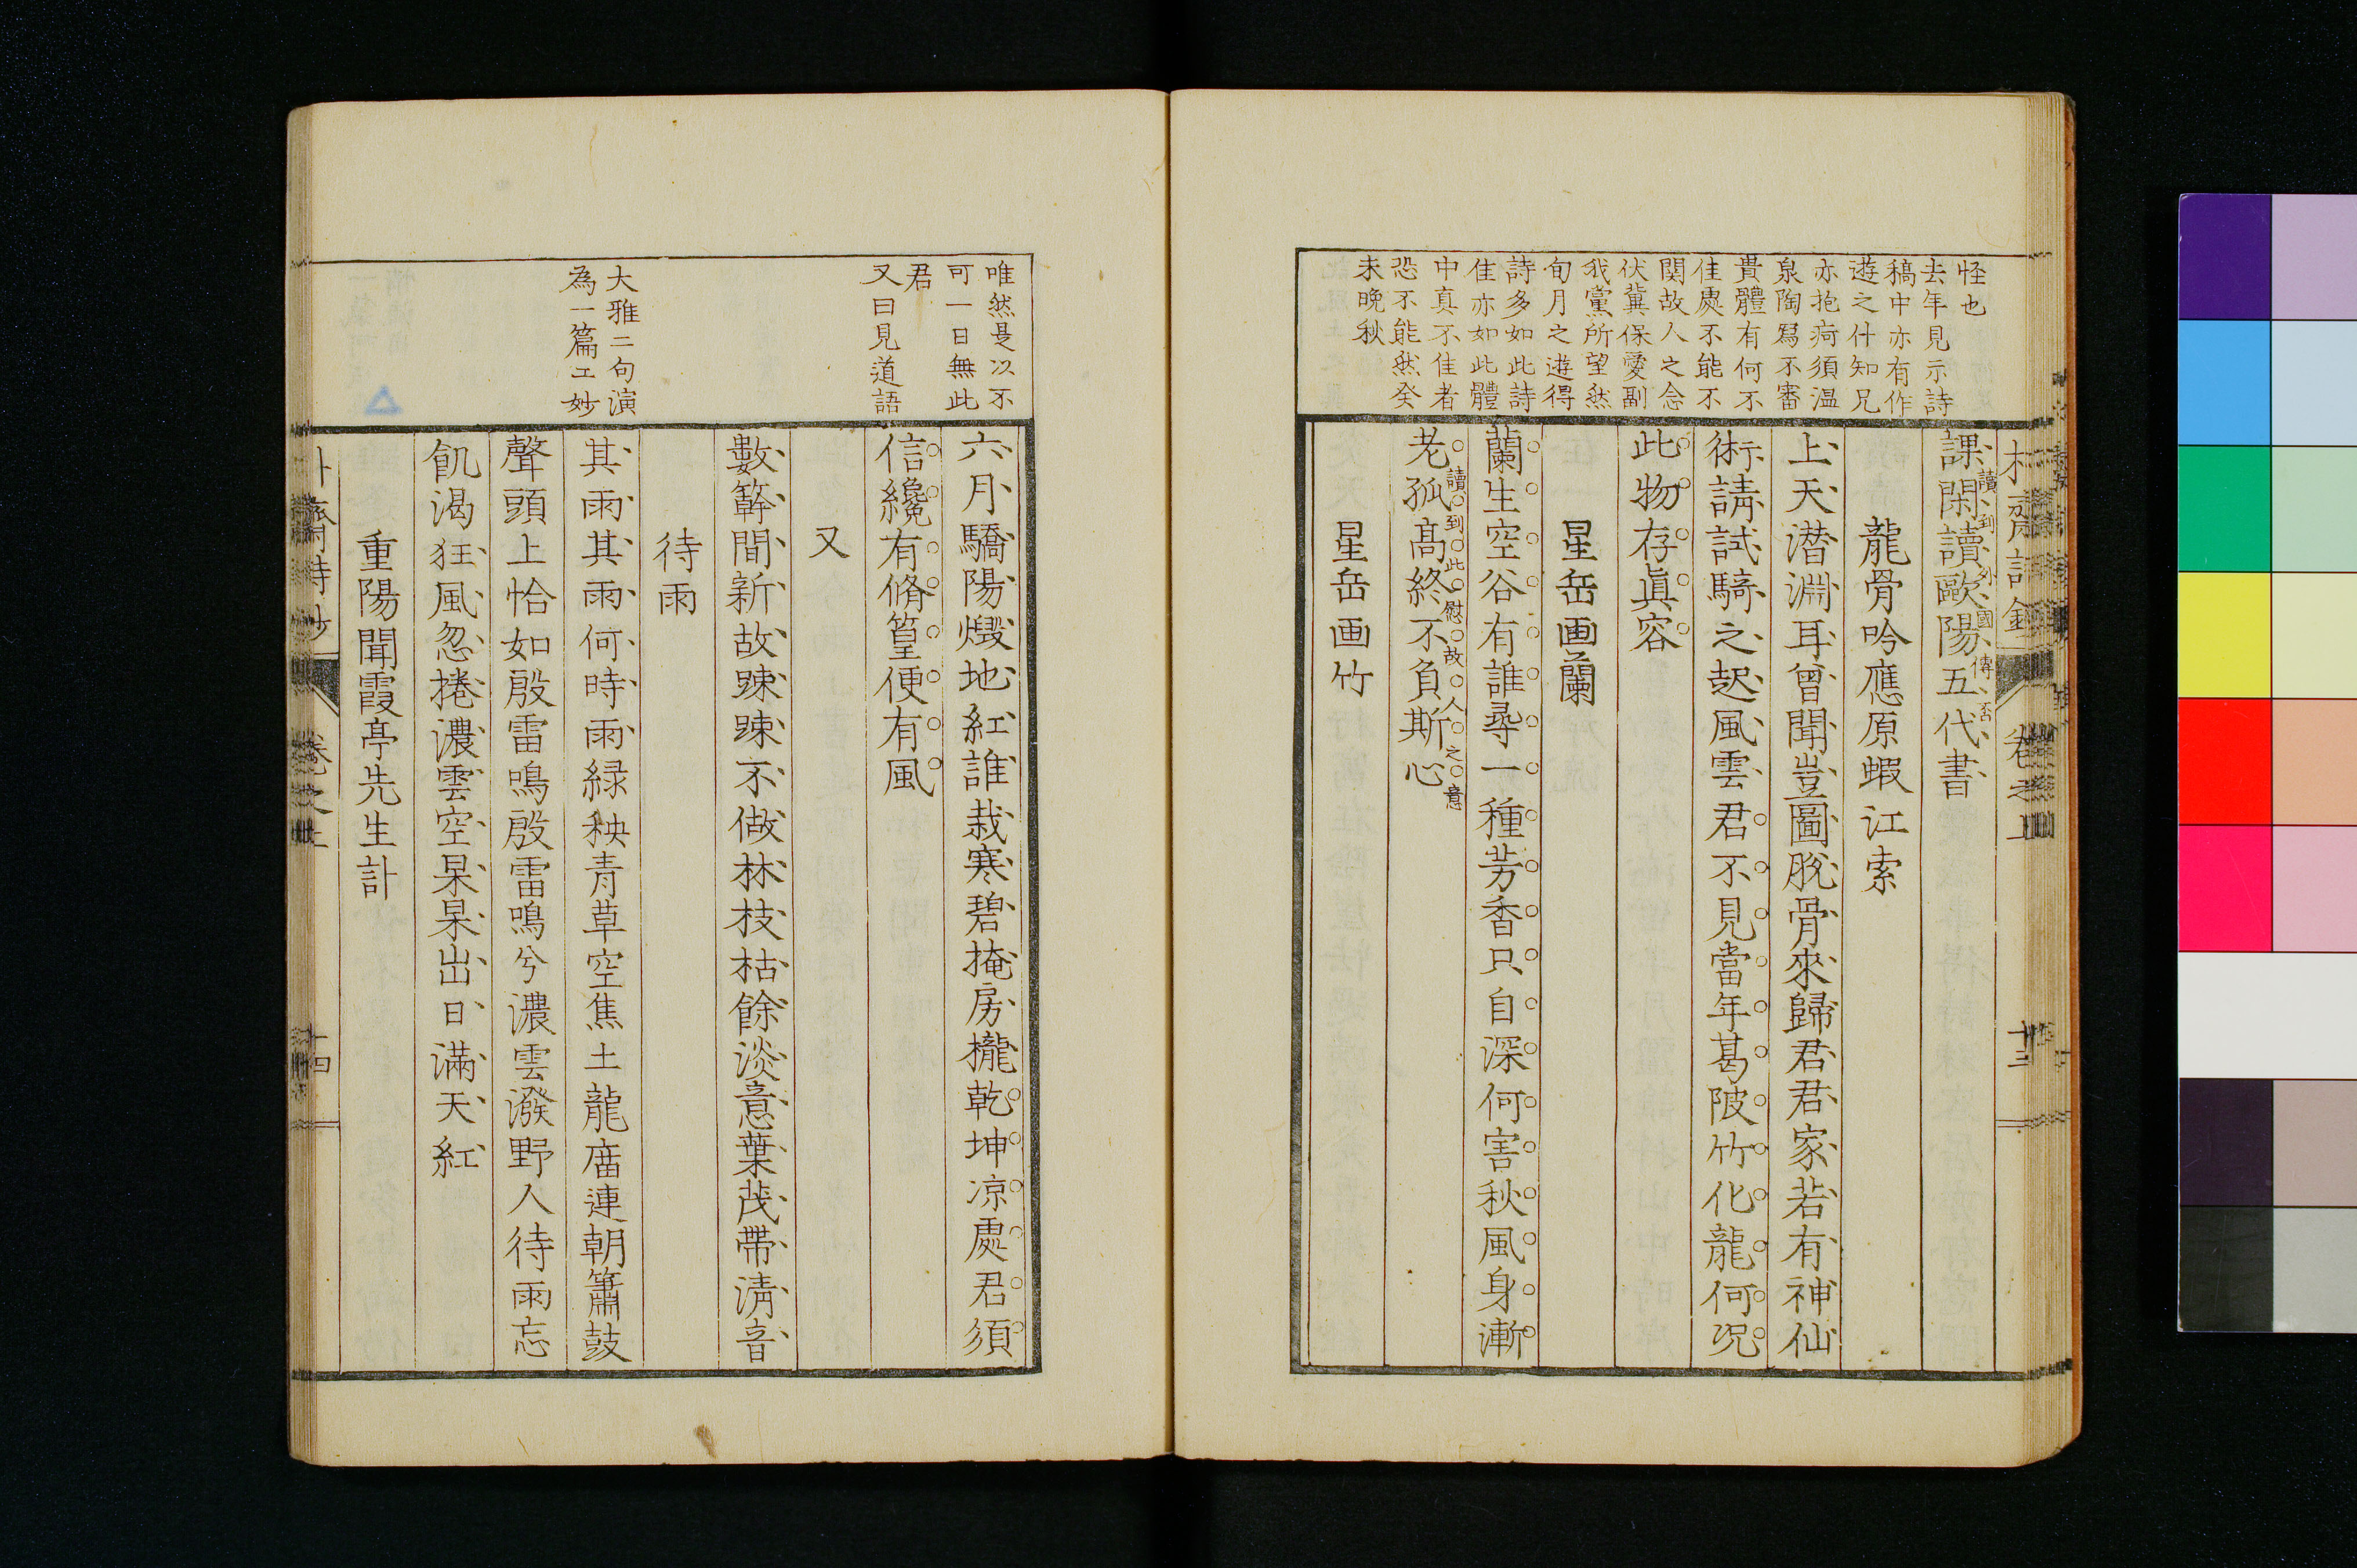 怪也
去年見示詩
稿中亦有作
遊之什知兄
亦抱痾須温
泉陶寫不審
貴體有何不
佳處不能不
関故人之念
伏冀保愛副
我黨所望然
旬月之遊得
詩多如此詩
佳亦如此體
中真不佳者
恐不能然癸
未晩秋
課閑讀歐陽五代書
讀到外國傳否
龍骨吟應原蝦江索
上天潜淵耳曾聞豈圖脱骨來歸君君家若有神仙
術請試騎之起風雲君不見當年葛陂竹化龍何况
此物存眞容
星岳画蘭
蘭生空谷有誰尋一種芳香只自深何害秋風身漸
老孤髙終不負斯心
讀到此慰故人之意
星岳画竹
卷之上
十三
唯然是以不
可一日無此
君
又曰見道語
大雅二句演
為一篇工妙
六月驕陽燬地紅誰栽寒碧掩房櫳乾坤凉處君須
信纔有脩篁便有風
又
數簳間新故踈踈不做林枝枯餘淡意葉茂帶淸音
待雨
其雨其雨何時雨緑秧青草空焦土龍庿連朝簫鼓
聲頭上恰如殷雷鳴殷雷鳴兮濃雲潑野人待雨忘
飢渇狂風忽捲濃雲空杲杲出日滿天紅
重陽聞霞亭先生訃
卷之上
十四